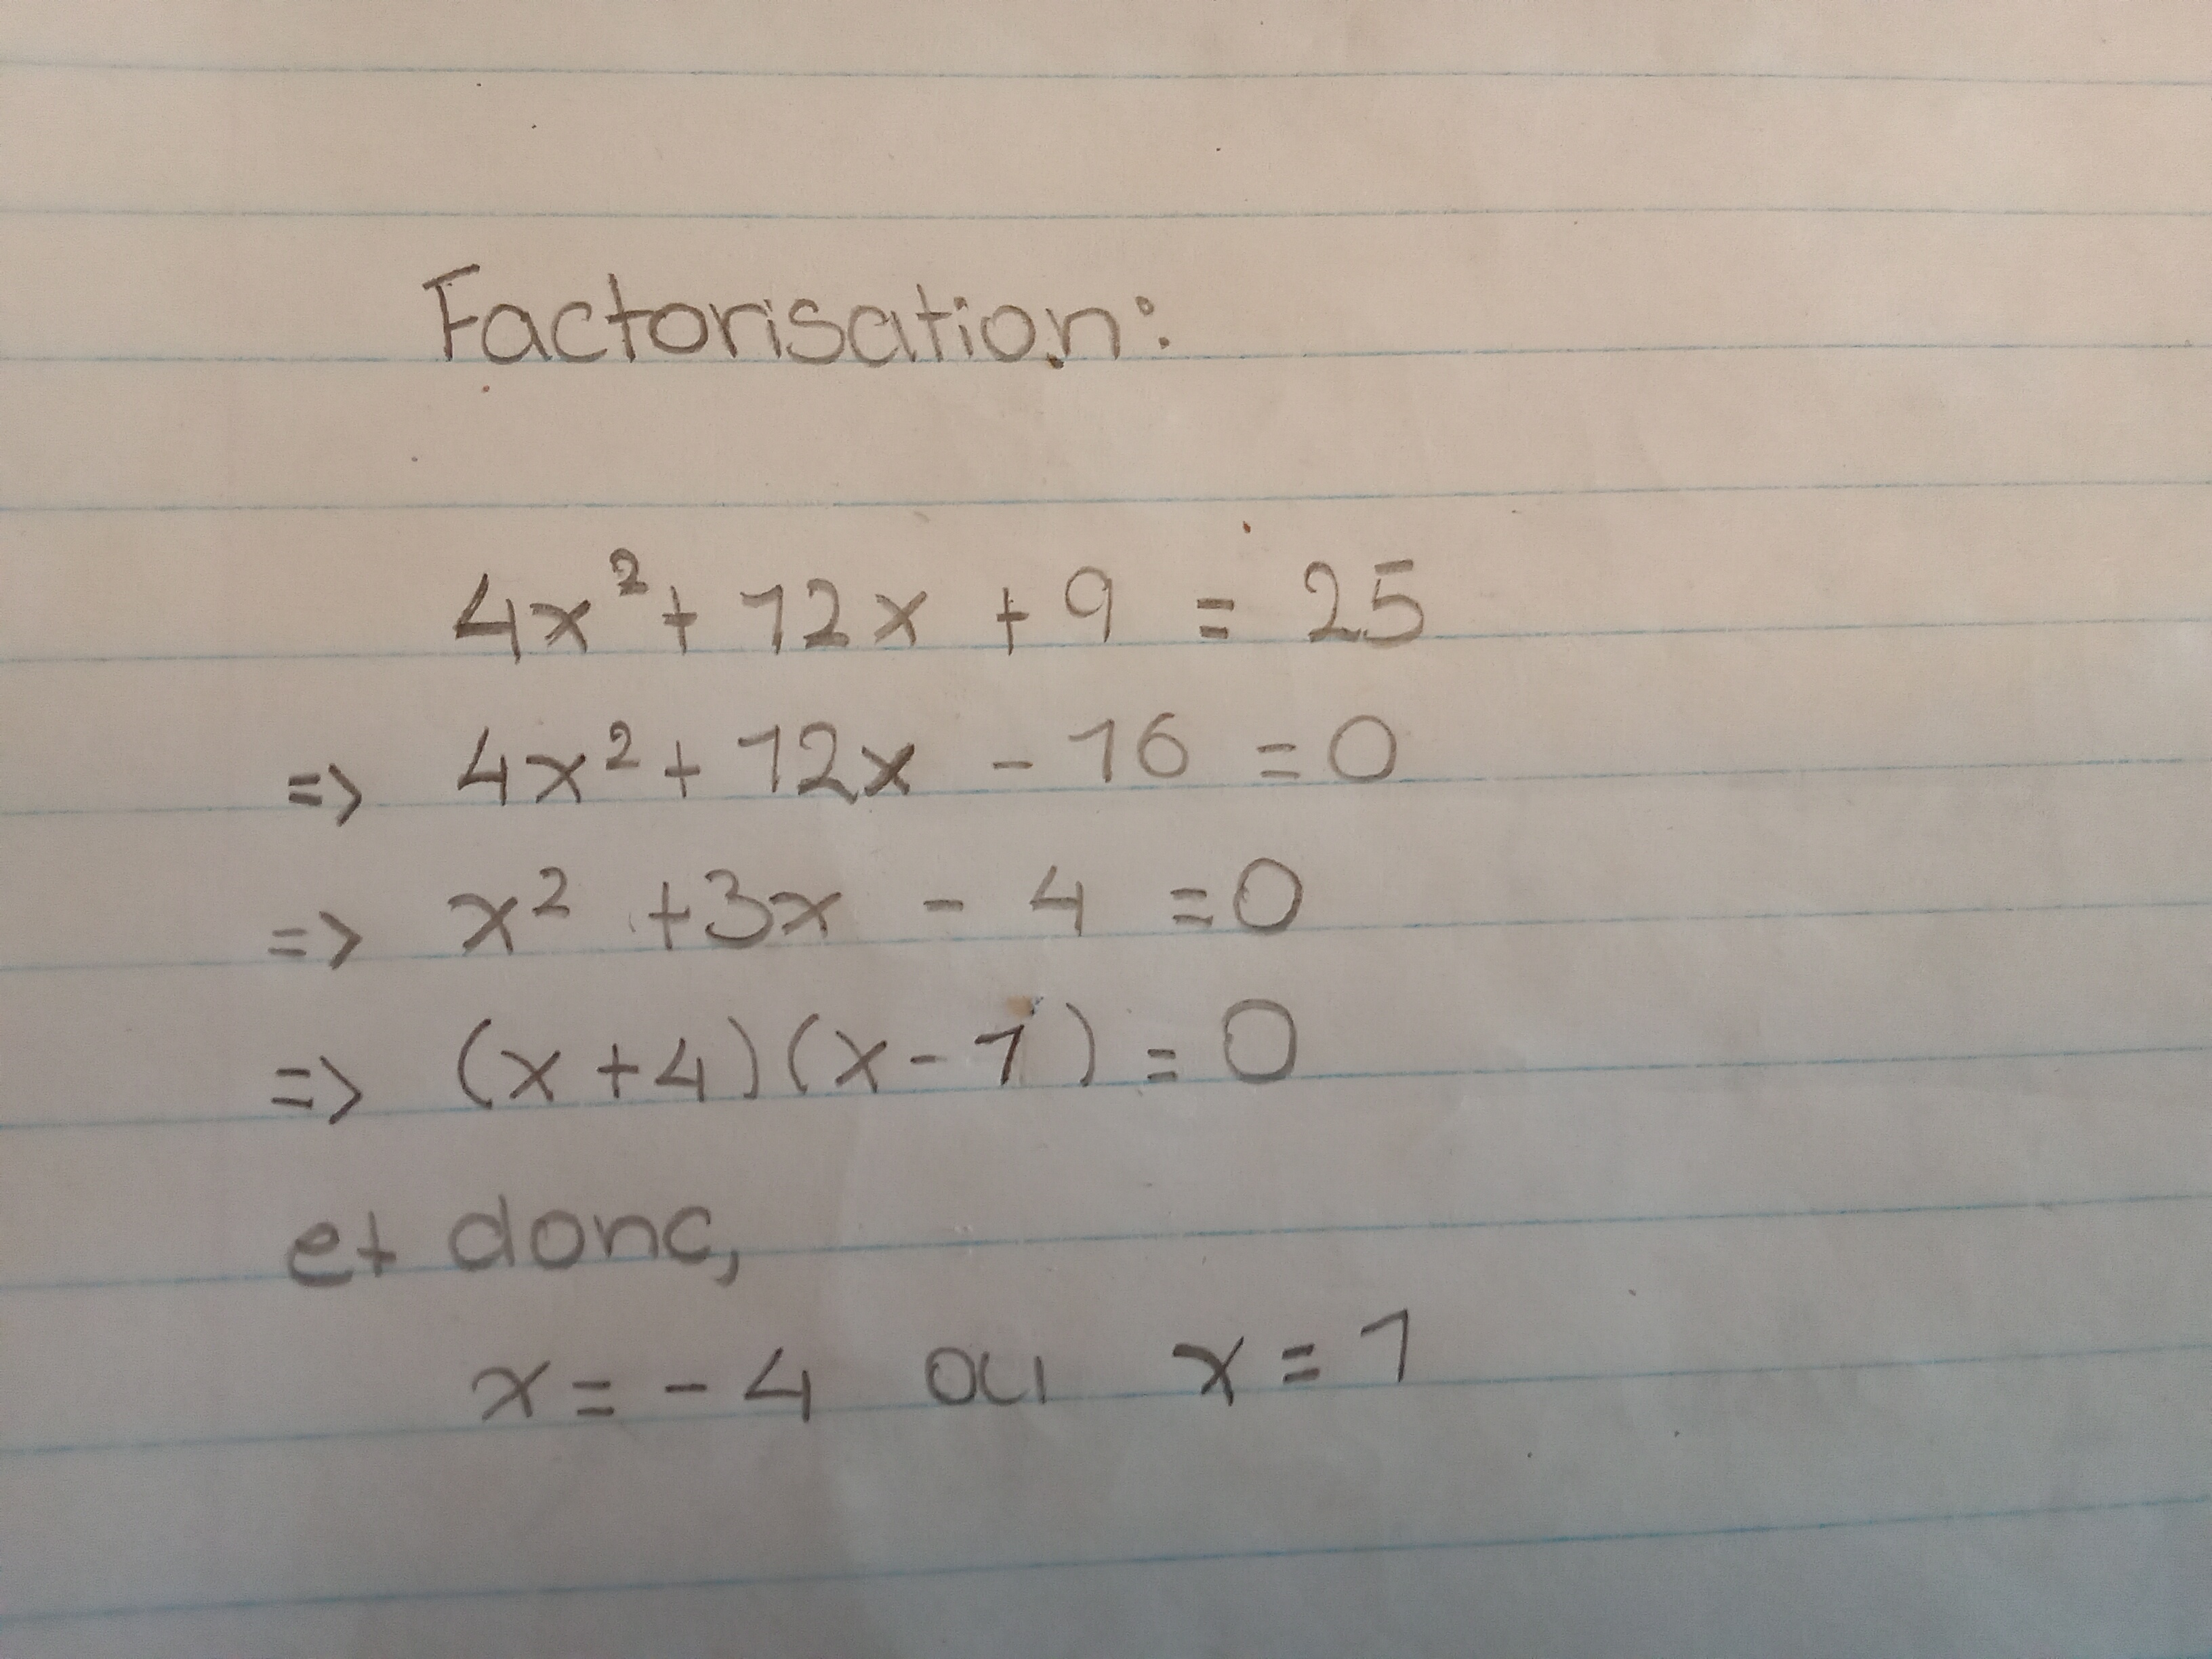 Factorisation:
4x² + 12x + 9 = 25
=> 4x² + 12x - 16 = 0
=> x² + 3x - 4 = 0
=> (x + 4)(x - 1) = 0
et donc,
x = - 4 ou x = 1